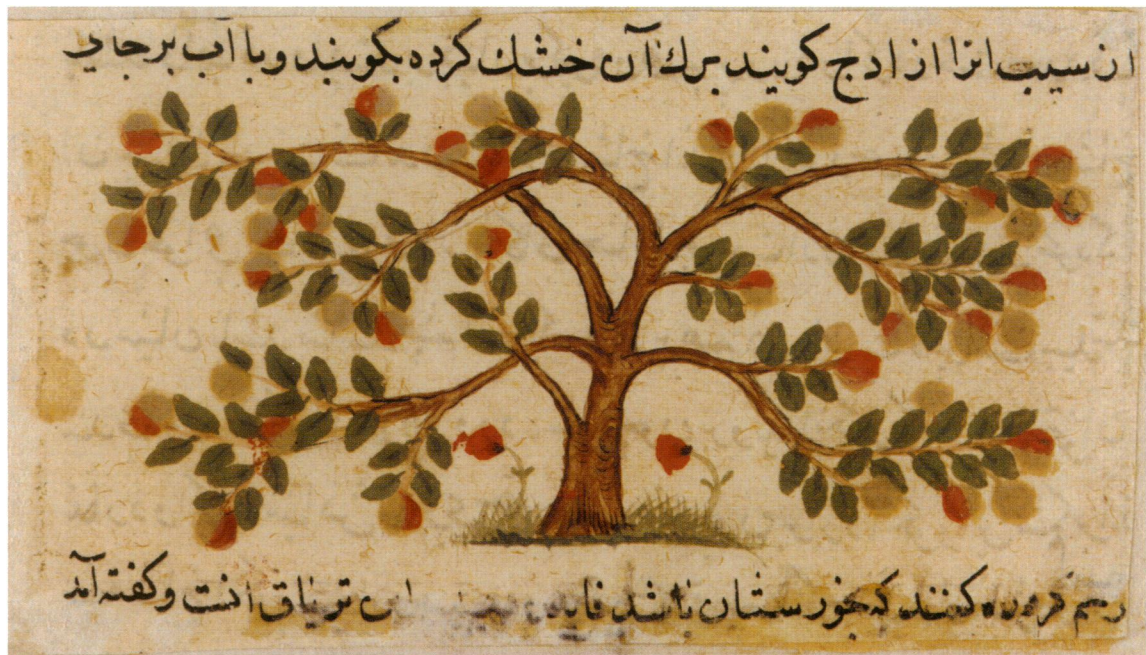 از سیب انرا ازادج کویند برك آن خشك کرده بکوبند و با آب بر جای
کنند که خورستان باشد این تریاق انست و کفته آمد